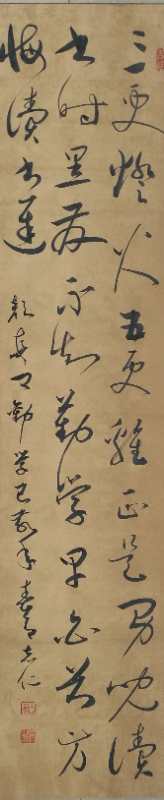 三更燈火五更雞正是男兒讀
書時黑髮不知勤學早白首方
悔讀書遲
顏真卿勸學己亥年春月志仁